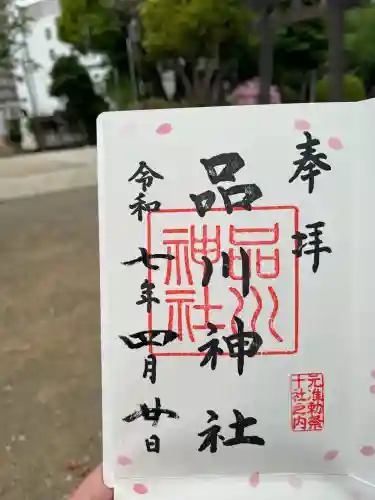 奉拝
品川神社
品川神社
元准勅祭
十社之内
令和七年四月廿日